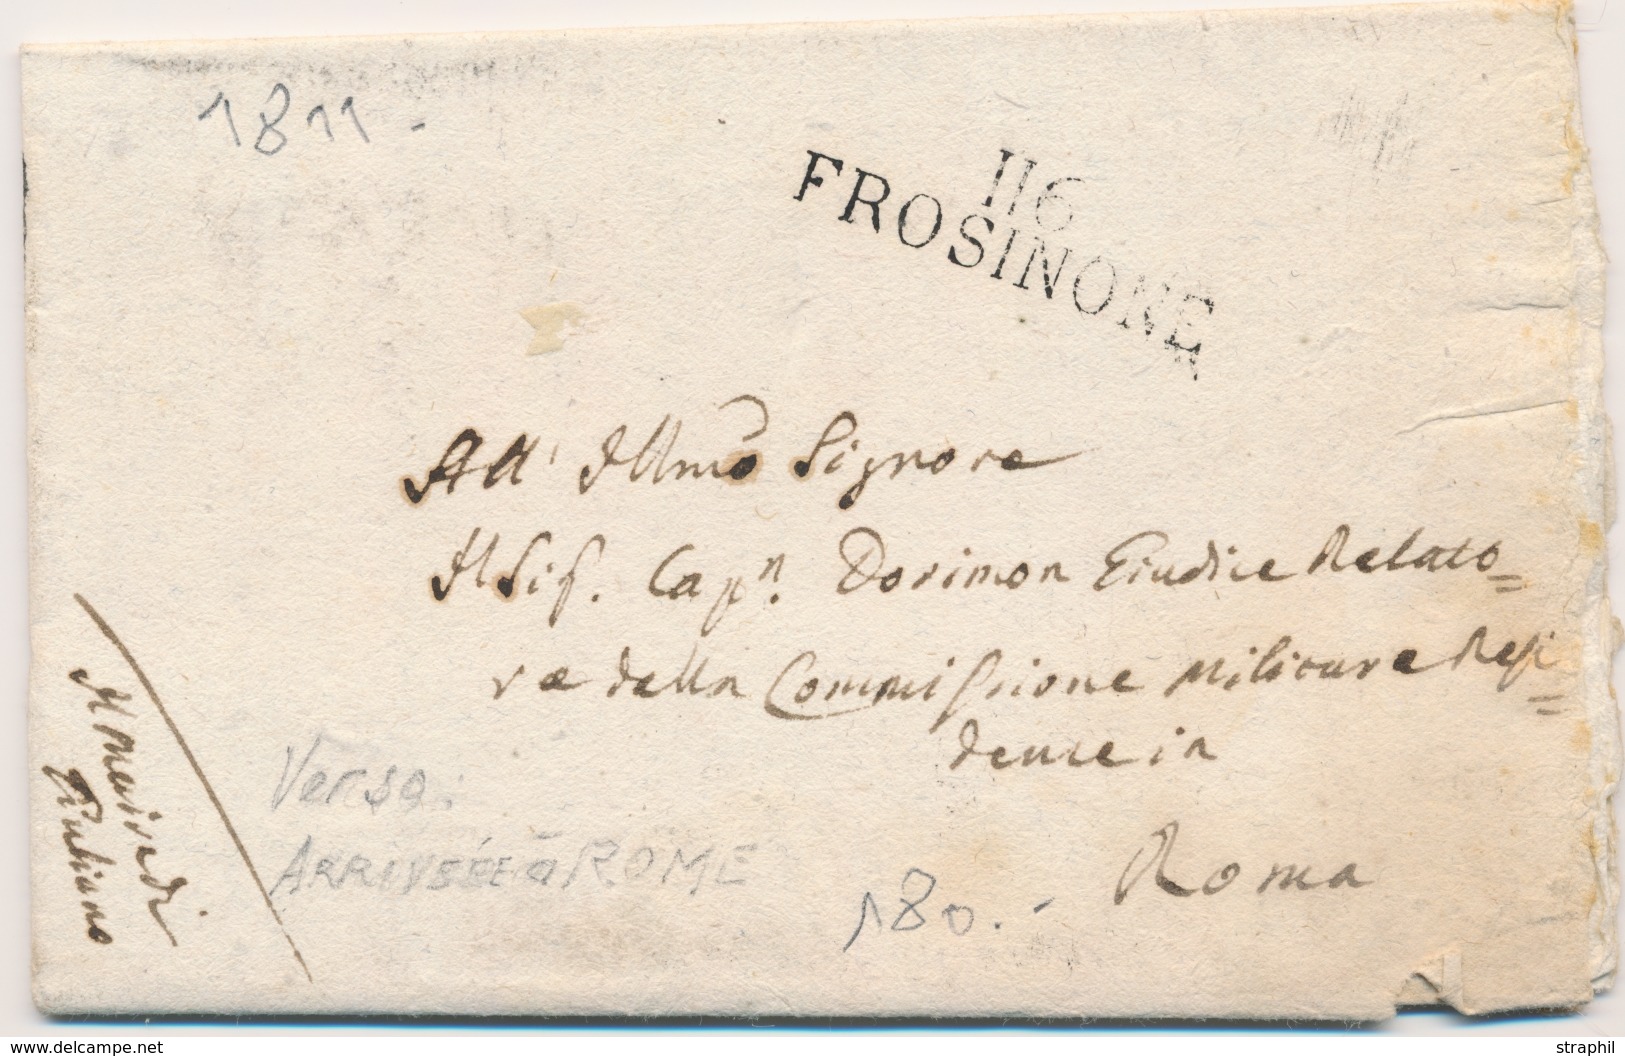 1811.
116
FROSINONE
All' Illmo Signore
Il Sig. Capn. Dorimon Giudice Relato=
re della Commissione Militare Resi=
dente in
Roma
Il Maire di
Giuliano
Verso:
ARRIVÉE à ROME
180.-
www.delcampe.net
straphil